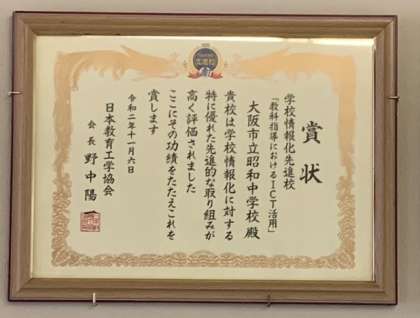 賞状
学校情報化先進校
「教科指導におけるICT活用」
大阪市立昭和中学校 殿
貴校は学校情報化に対する
特に優れた先進的な取り組みが
高く評価されました
ここにその功績をたたえこれを
賞します
令和二年十一月六日
日本教育工学協会
会長 野中陽一